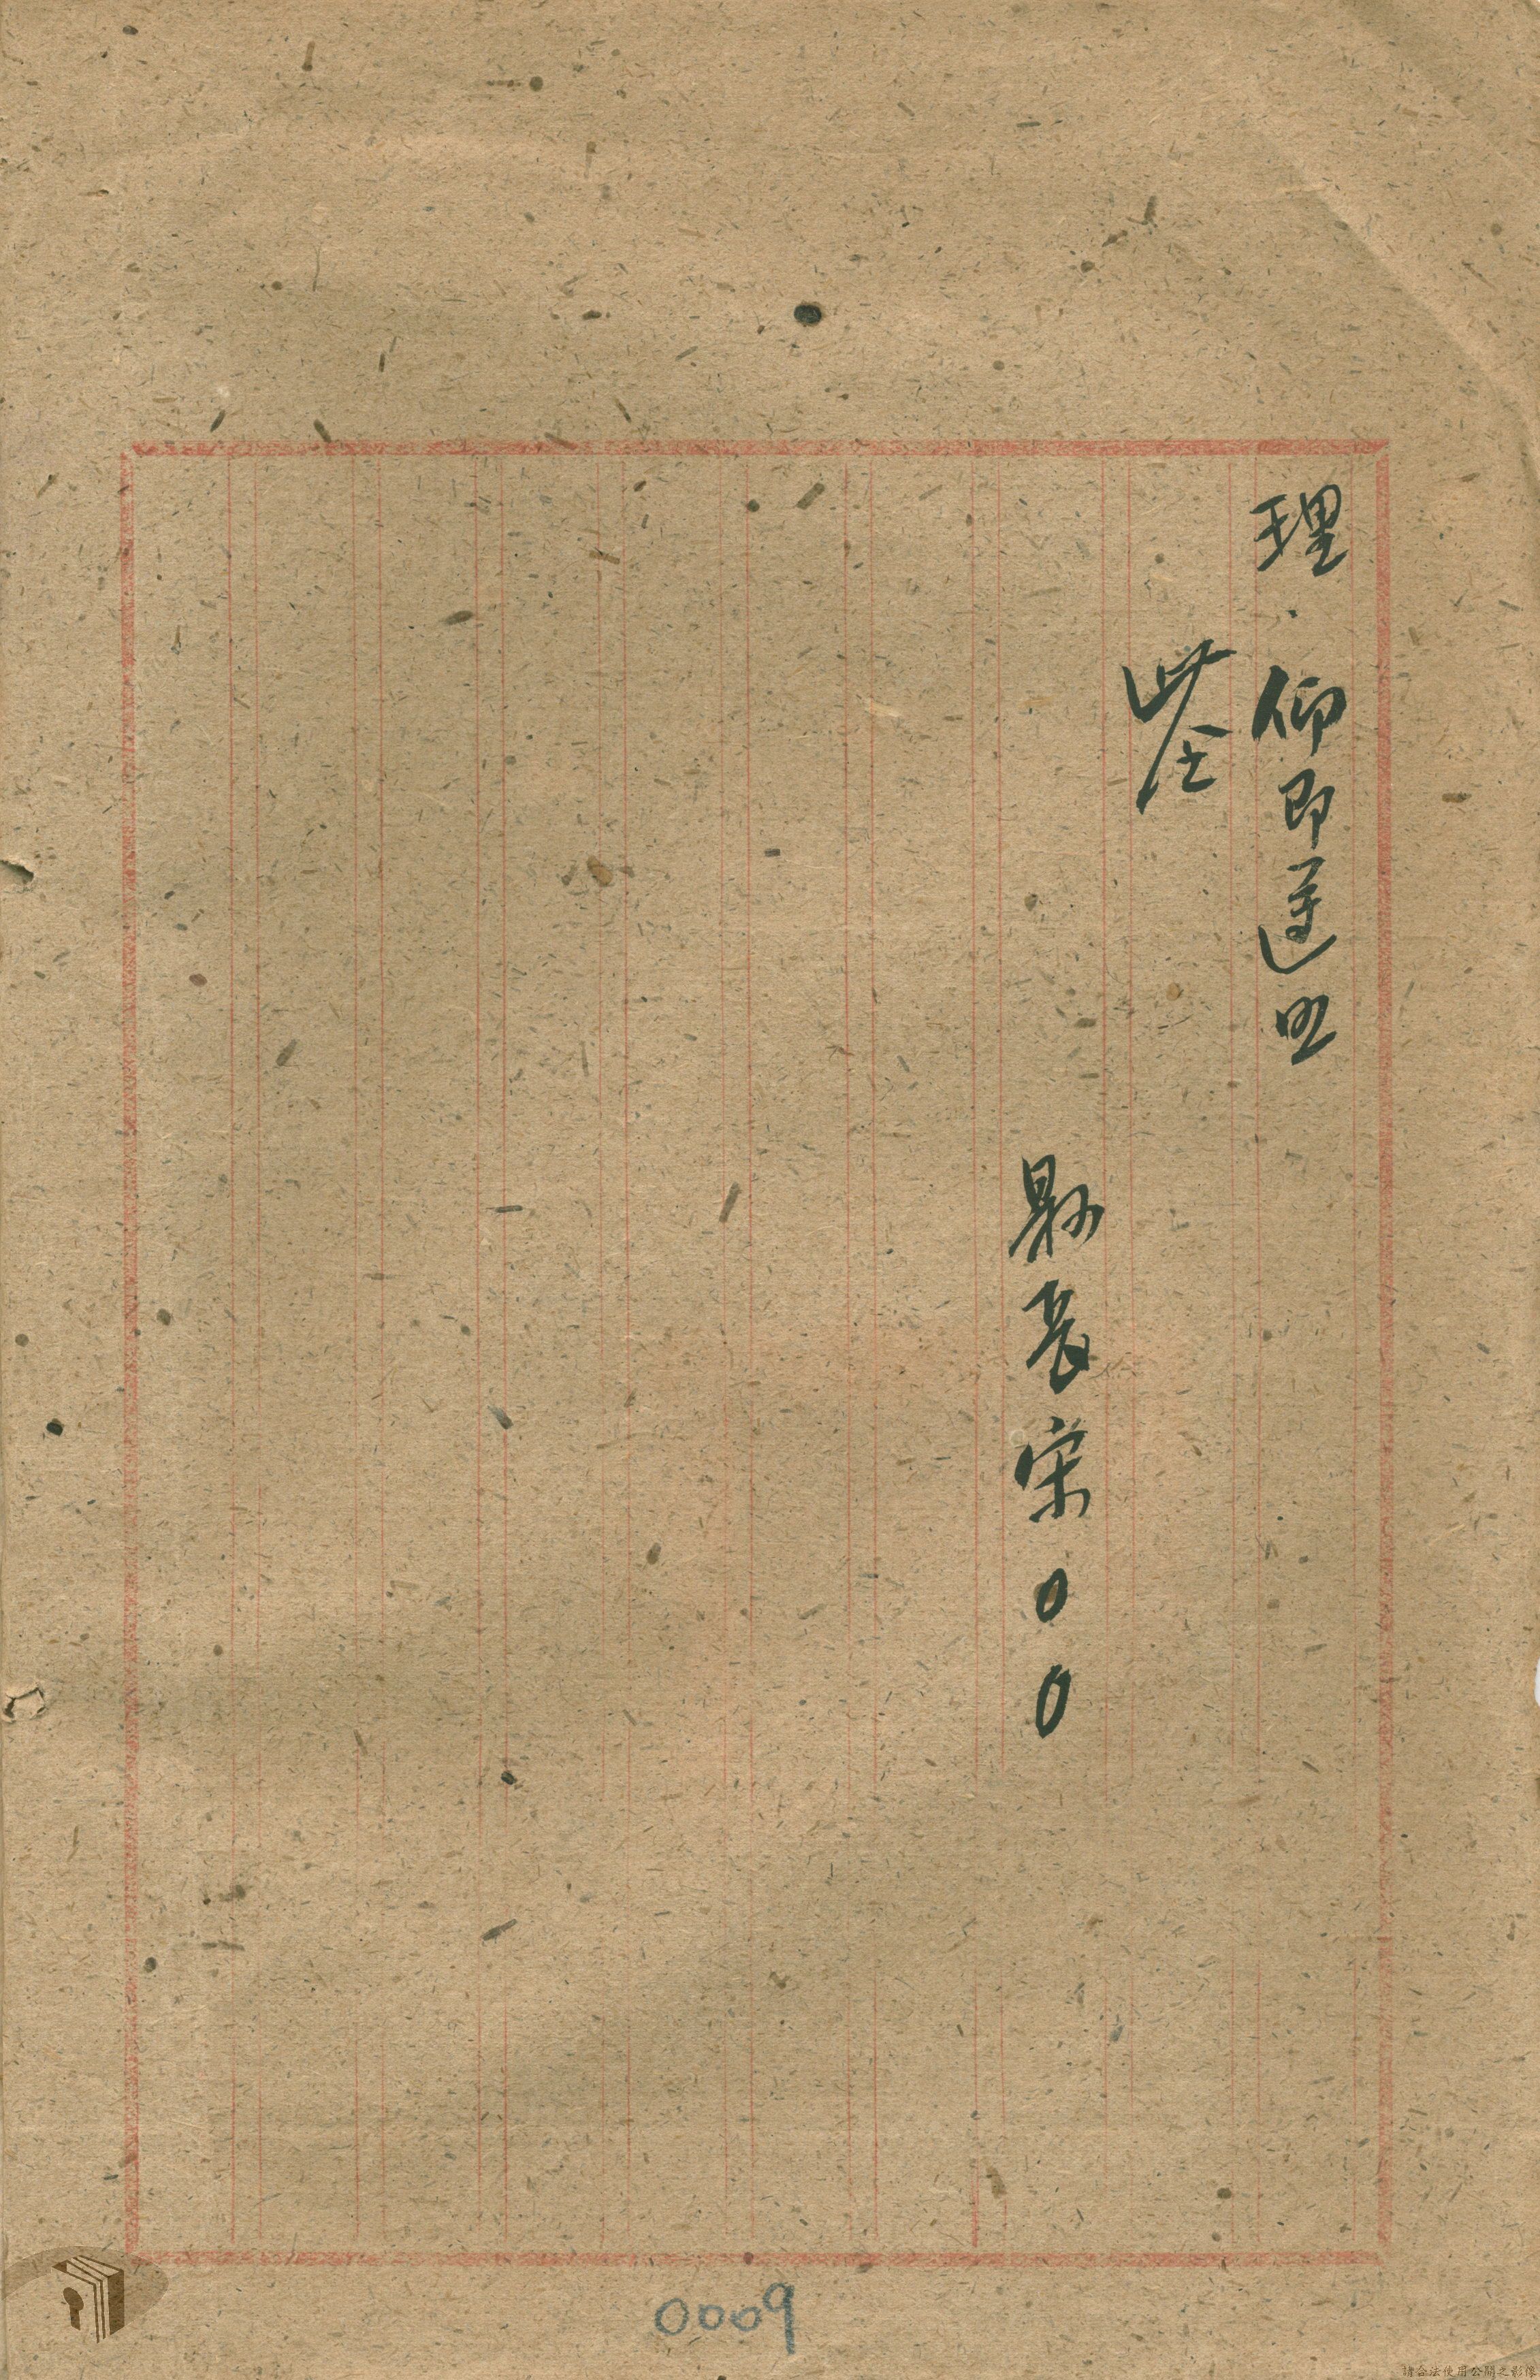 理．仰即遵照
此令
縣長宋〇〇
0009
請合法使用公開之影像